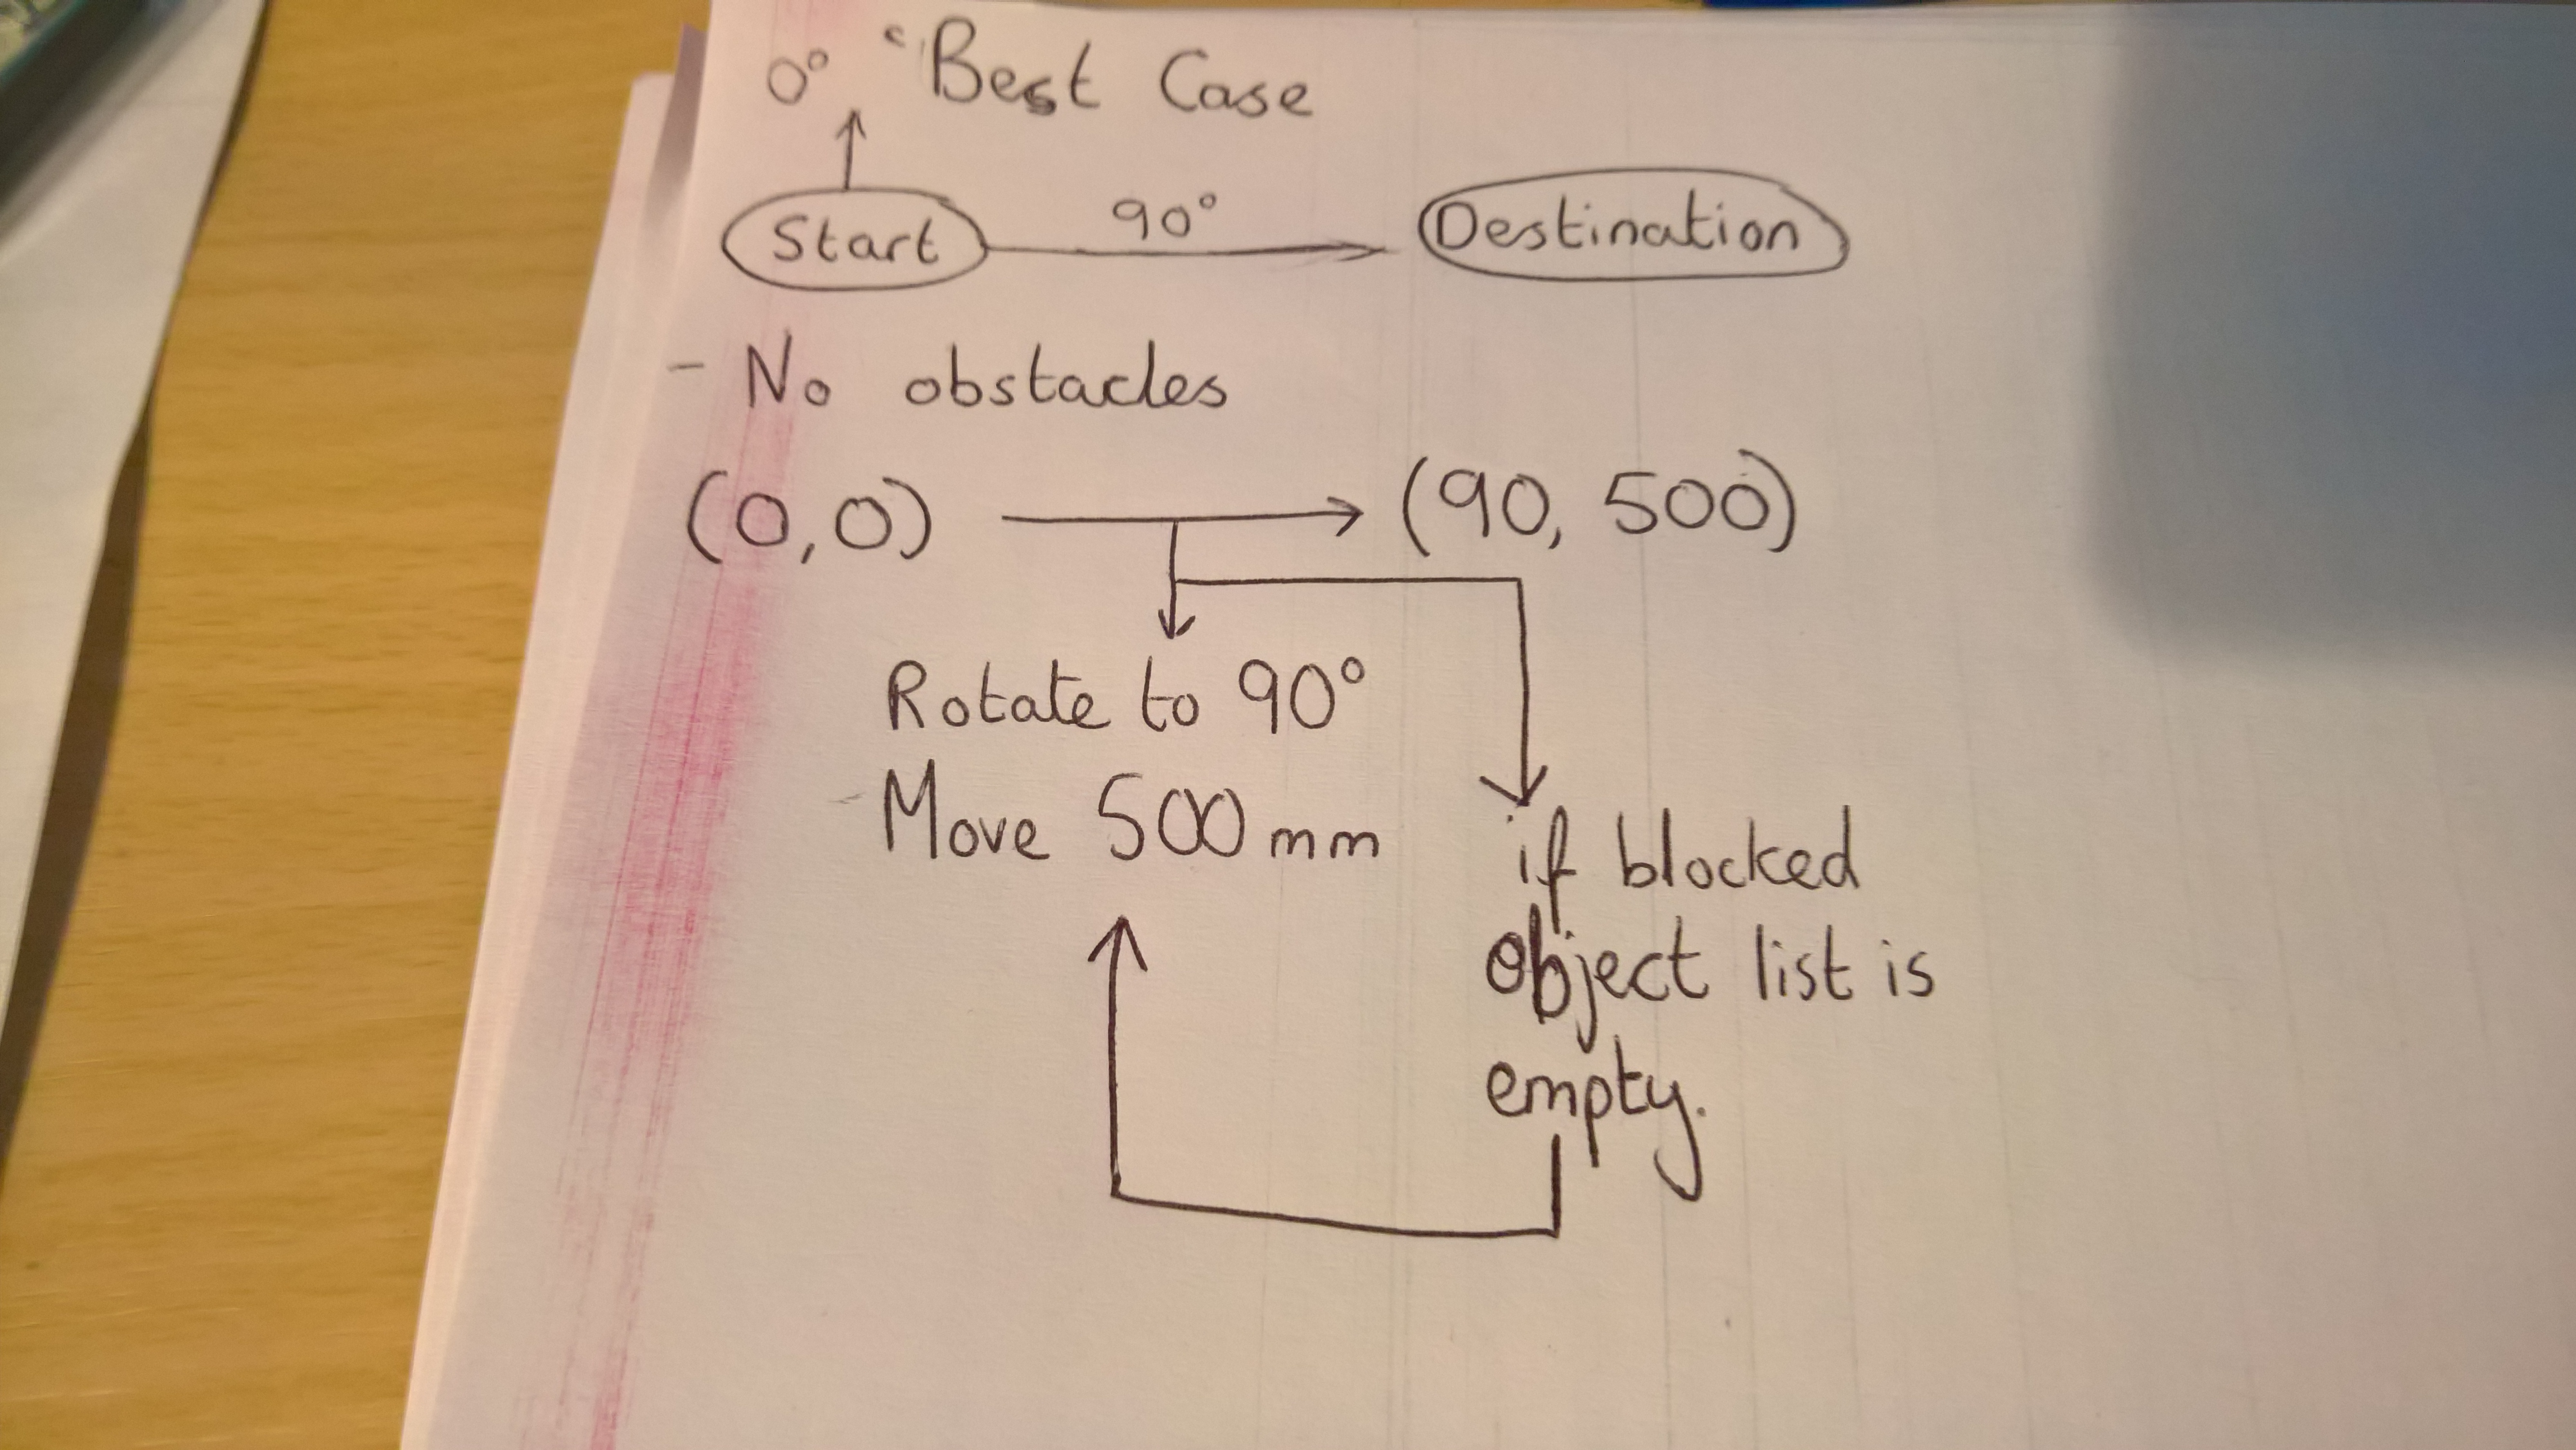 0° "Best Case
Start 90° Destination
- No obstacles
(0,0) (90, 500)
Rotate to 90°
Move 500mm
if blocked
object list is
empty.